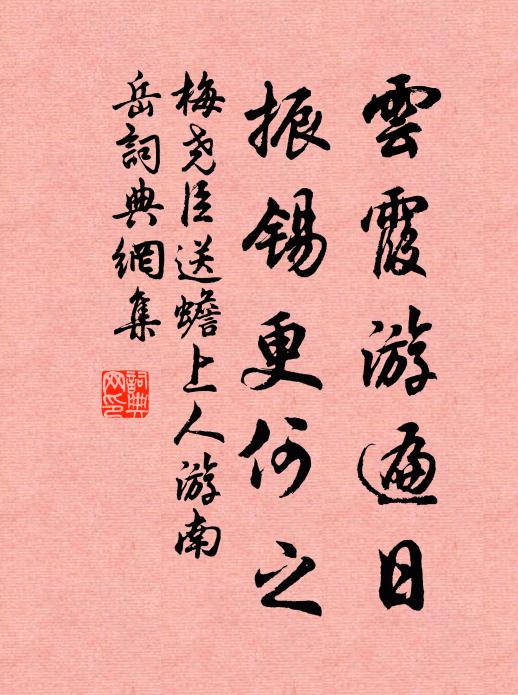 雲霞游遍日
振錫更何之
梅尧臣送蟾上人游南
岳詞典網集
詞典网印